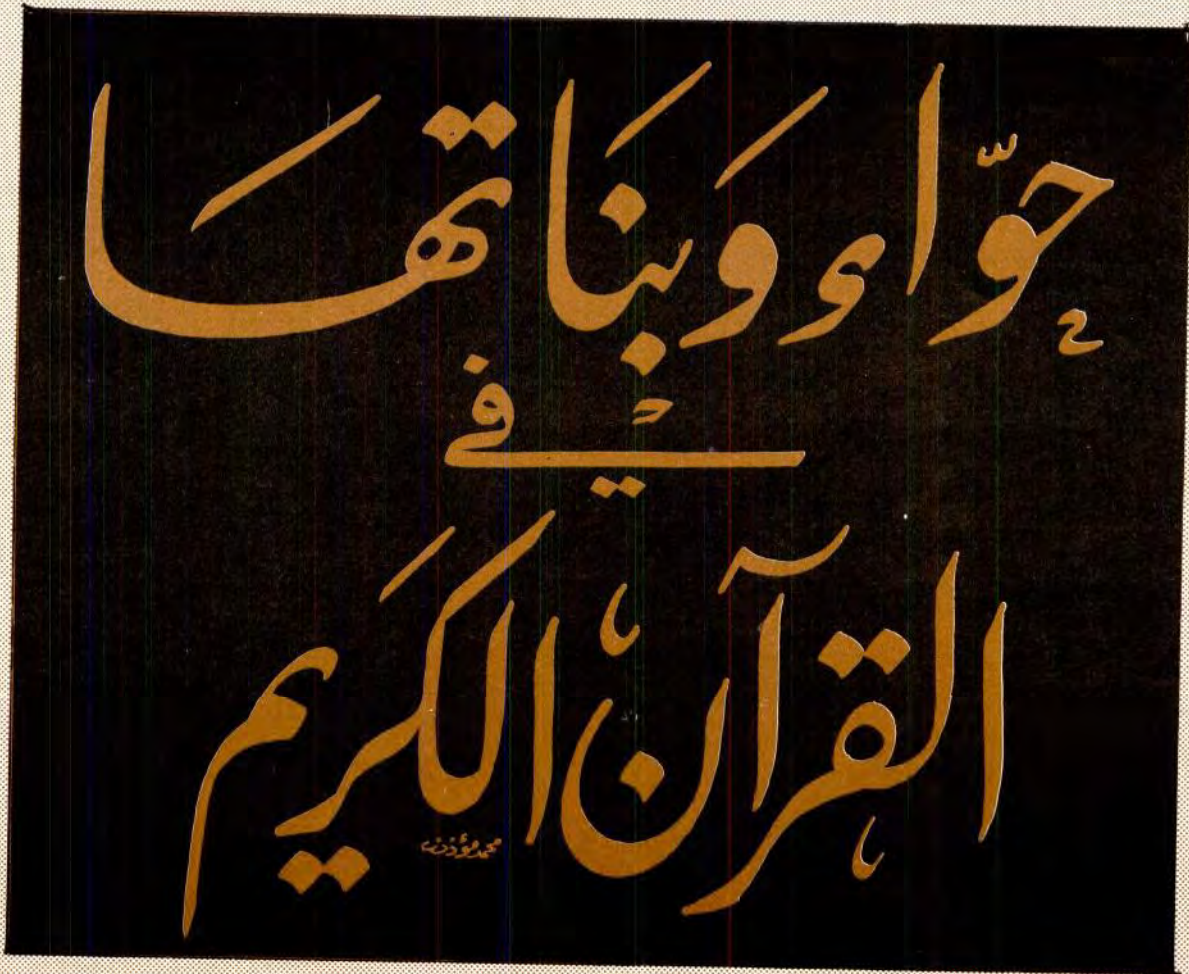 حَوّاء وَبَنَاتهَا
في
القرآن الكَريم
محمد مؤذن